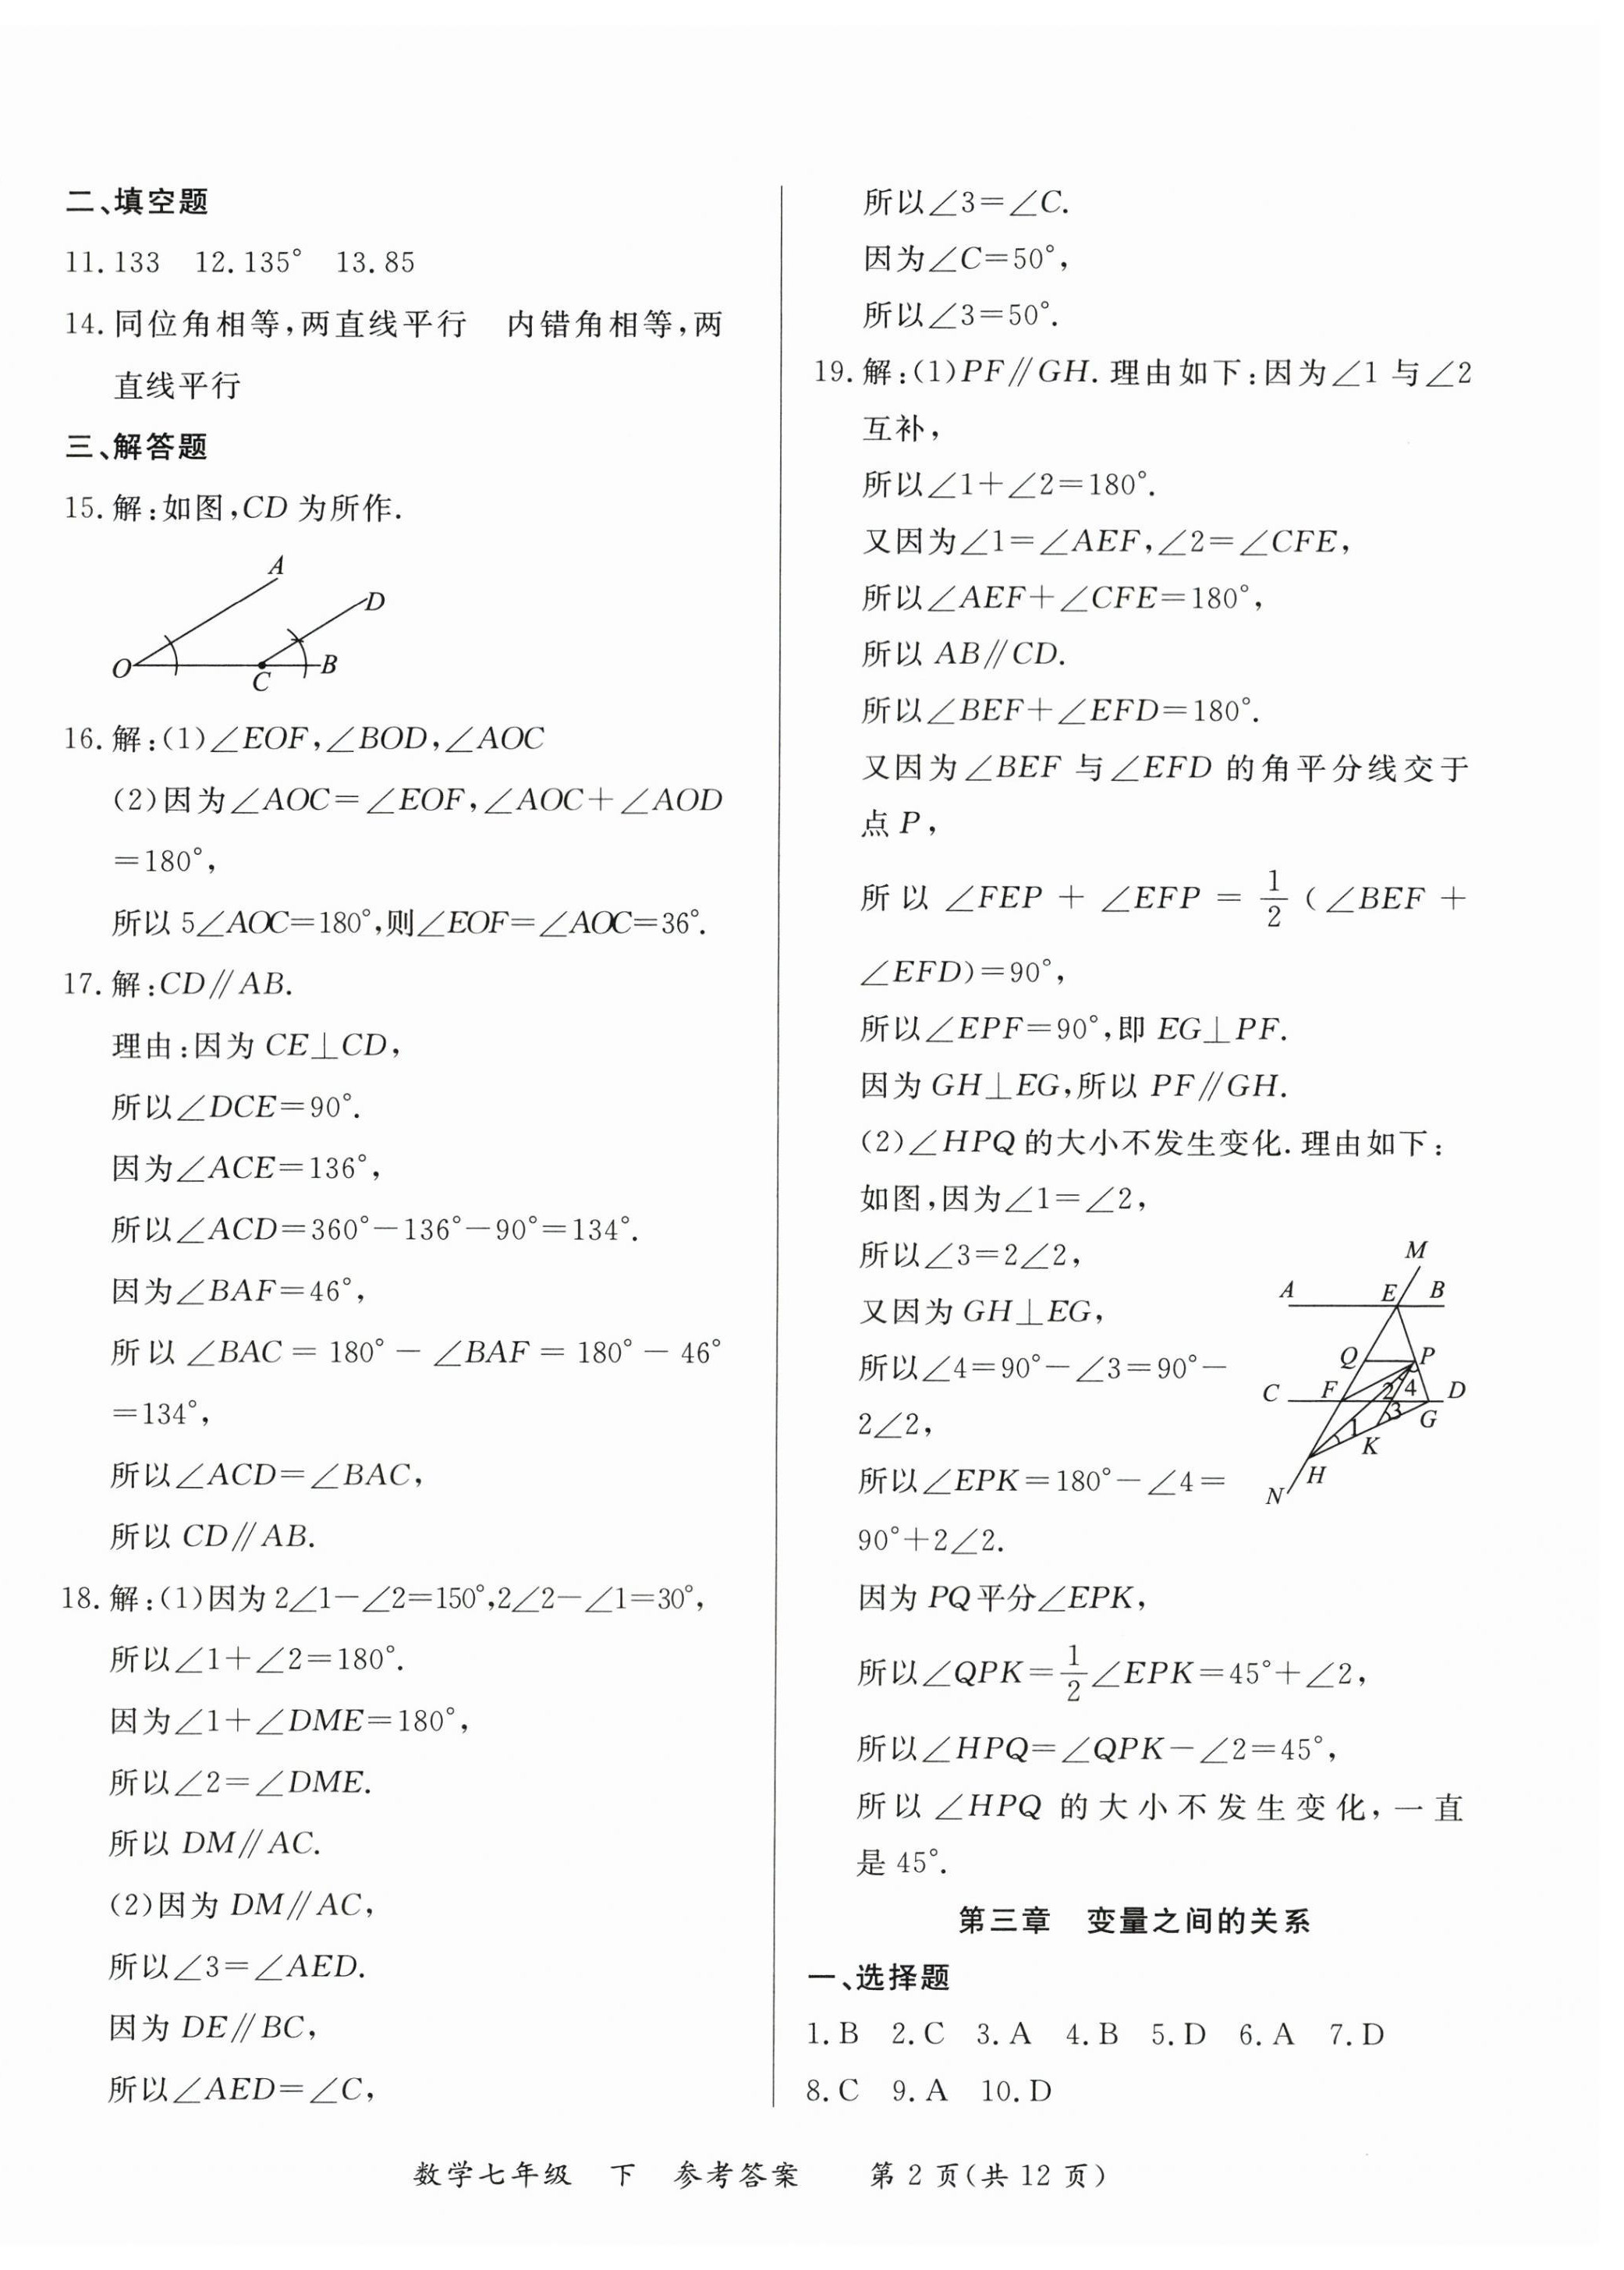 二、填空题
11.133　12.135°　13.85
14.同位角相等,两直线平行　内错角相等,两
直线平行
三、解答题
15.解:如图,CD 为所作.
A
D
O
C
B
16.解:(1)∠EOF,∠BOD,∠AOC
(2)因为∠AOC=∠EOF,∠AOC+∠AOD
=180°,
所以 5∠AOC=180°,则∠EOF=∠AOC=36°.
17.解:CD∥AB.
理由:因为 CE⊥CD,
所以∠DCE=90°.
因为∠ACE=136°,
所以∠ACD=360°-136°-90°=134°.
因为∠BAF=46°,
所以∠BAC=180°-∠BAF=180°-46°
=134°,
所以∠ACD=∠BAC,
所以 CD∥AB.
18.解:(1)因为 2∠1-∠2=150°,2∠2-∠1=30°,
所以∠1+∠2=180°.
因为∠1+∠DME=180°,
所以∠2=∠DME.
所以 DM∥AC.
(2)因为 DM∥AC,
所以∠3=∠AED.
因为 DE∥BC,
所以∠AED=∠C,
所以∠3=∠C.
因为∠C=50°,
所以∠3=50°.
19.解:(1)PF∥GH.理由如下:因为∠1 与∠2
互补,
所以∠1+∠2=180°.
又因为∠1=∠AEF,∠2=∠CFE,
所以∠AEF+∠CFE=180°,
所以 AB∥CD.
所以∠BEF+∠EFD=180°.
又因为∠BEF 与∠EFD 的角平分线交于
点 P,
所以∠FEP+∠EFP=1/2(∠BEF+
∠EFD)=90°,
所以∠EPF=90°,即 EG⊥PF.
因为 GH⊥EG,所以 PF∥GH.
(2)∠HPQ 的大小不发生变化.理由如下:
如图,因为∠1=∠2,
所以∠3=2∠2,
又因为 GH⊥EG,
所以∠4=90°-∠3=90°-
2∠2,
所以∠EPK=180°-∠4=
90°+2∠2.
M
A
E
B
Q
P
C
F
2
4
D
3
G
1
K
H
N
因为 PQ 平分∠EPK,
所以∠QPK=1/2∠EPK=45°+∠2,
所以∠HPQ=∠QPK-∠2=45°,
所以∠HPQ 的大小不发生变化,一直
是 45°.
第三章　变量之间的关系
一、选择题
1.B　2.C　3.A　4.B　5.D　6.A　7.D
8.C　9.A　10.D
数学七年级　下　参考答案　第 2 页(共 12 页)